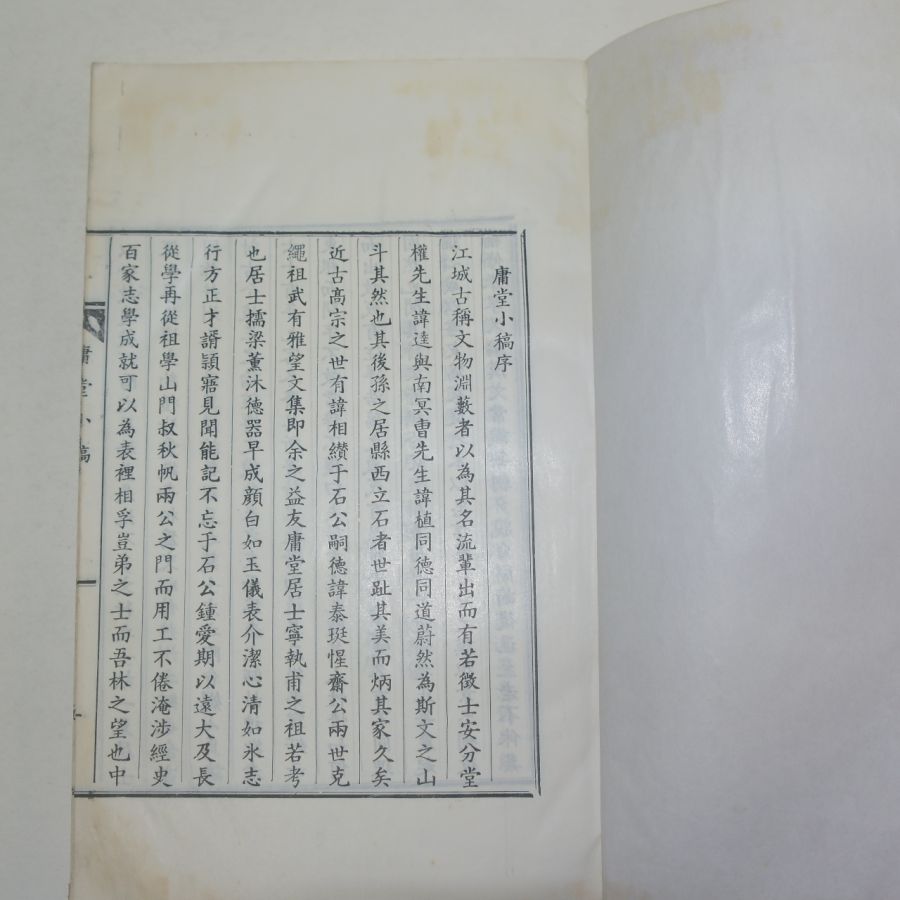 庸堂小稿序
江城古稱文物淵藪者以為其名流輩出而有若徵士安分堂
權先生諱逵與南冥曺先生諱植同德同道蔚然為斯文之山
斗其然也其後孫之居縣西立石者世趾其美而炳其家久矣
近古高宗之世有諱相纘于石公嗣德諱泰珽惺齋公兩世克
繩祖武有雅望文集即余之益友庸堂居士寧執甫之祖若考
也居士擩梁薰沐德器早成顔白如玉儀表介潔心清如氷志
行方正才諝頴寤見聞能記不忘于石公鍾愛期以遠大及長
從學再從祖學山門叔秋帆兩公之門而用工不倦淹涉經史
百家志學成就可以為表裡相孚豈弟之士而吾林之望也中
庸堂小稿